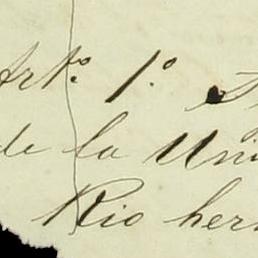 Art.º 1.º
de la Uni
Rio her